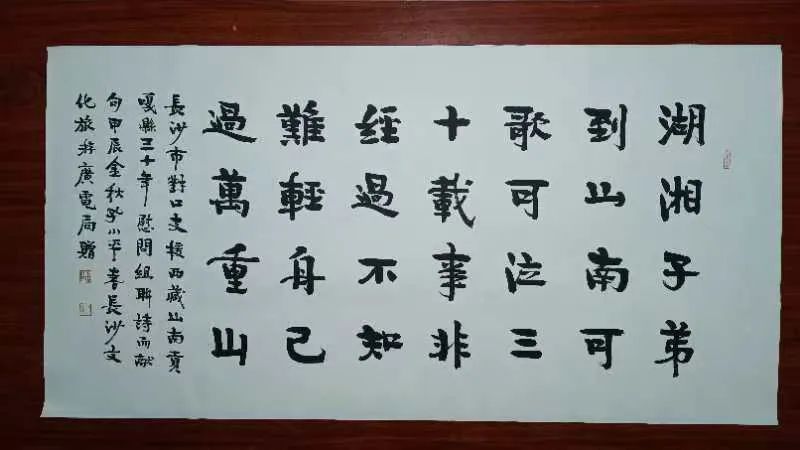 湖湘子弟
到山南可
歌可泣三
十載事非
經過不知
難輕舟已
過萬重山
長沙市對口支援西藏山南貢
嘎縣三十年慰問組聯詩而献
句甲辰金秋孔小平書長沙文
化旅游廣電局贈